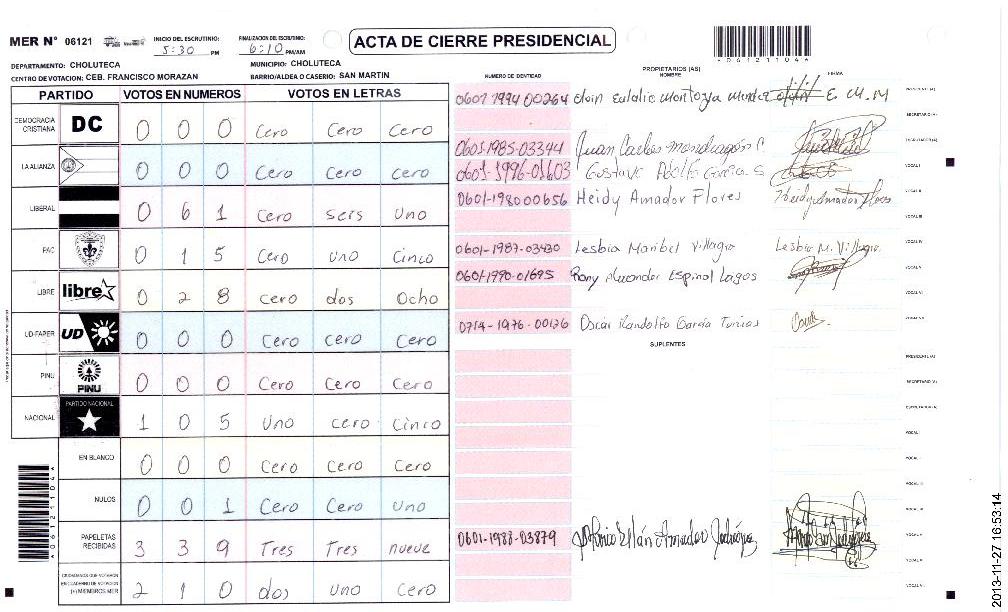 MER N° 06121
INICIO DEL ESCRUTINIO: 5:30 PM
FINALIZACION DEL ESCRUTINIO: 6:10 PM/AM
ACTA DE CIERRE PRESIDENCIAL
*061211044*
DEPARTAMENTO: CHOLUTECA
MUNICIPIO: CHOLUTECA
CENTRO DE VOTACION: CEB. FRANCISCO MORAZAN
BARRIO/ALDEA O CASERIO: SAN MARTIN
PARTIDO VOTOS EN NUMEROS VOTOS EN LETRAS
DEMOCRACIA CRISTIANA DC 0 0 0 Cero Cero Cero
LA ALIANZA 0 0 0 Cero Cero Cero
LIBERAL 0 6 1 Cero seis Uno
PAC 0 1 5 Cero uno Cinco
LIBRE libre 0 2 8 Cero dos Ocho
UD-FAPER UD 0 0 0 Cero cero Cero
PINU PINU 0 0 0 Cero Cero Cero
NACIONAL PARTIDO NACIONAL 1 0 5 Uno cero Cinco
EN BLANCO 0 0 0 Cero Cero Cero
NULOS 0 0 1 Cero Cero Uno
PAPELETAS RECIBIDAS 3 3 9 Tres Tres nueve
CIUDADANOS QUE VOTARON EN CUADERNO DE VOTACION (+) MIEMBROS MER 2 1 0 dos Uno Cero
*061211044*
NUMERO DE IDENTIDAD
PROPIETARIOS (AS)
NOMBRE
FIRMA
0607 1994 00264 Eulalio Montoya E. M. M PRESIDENTE (A)
SECRETARIO (A)
0601-1985-03344 Juan Carlos Mondragón ESCRUTADOR (A)
0601-1996-01603 Gustavo Adolfo Garcia S VOCAL I
0601-198000656 Heidy Amador Flores Heidy Amador Flores VOCAL II
VOCAL III
0601-1987-03430 Lesbia Maribel Villagra Lesbia M. Villagra VOCAL IV
0601-1990-01695 Rony Alexander Espinal Lagos VOCAL V
VOCAL VI
0714-1976-00136 Oscar Randolfo García Turcios VOCAL VII
SUPLENTES
PRESIDENTE (A)
SECRETARIO (A)
ESCRUTADOR (A)
VOCAL I
VOCAL II
VOCAL III
0601-1988-03879 Amador VOCAL V
VOCAL VI
VOCAL VII
2013-11-27 16:53:14